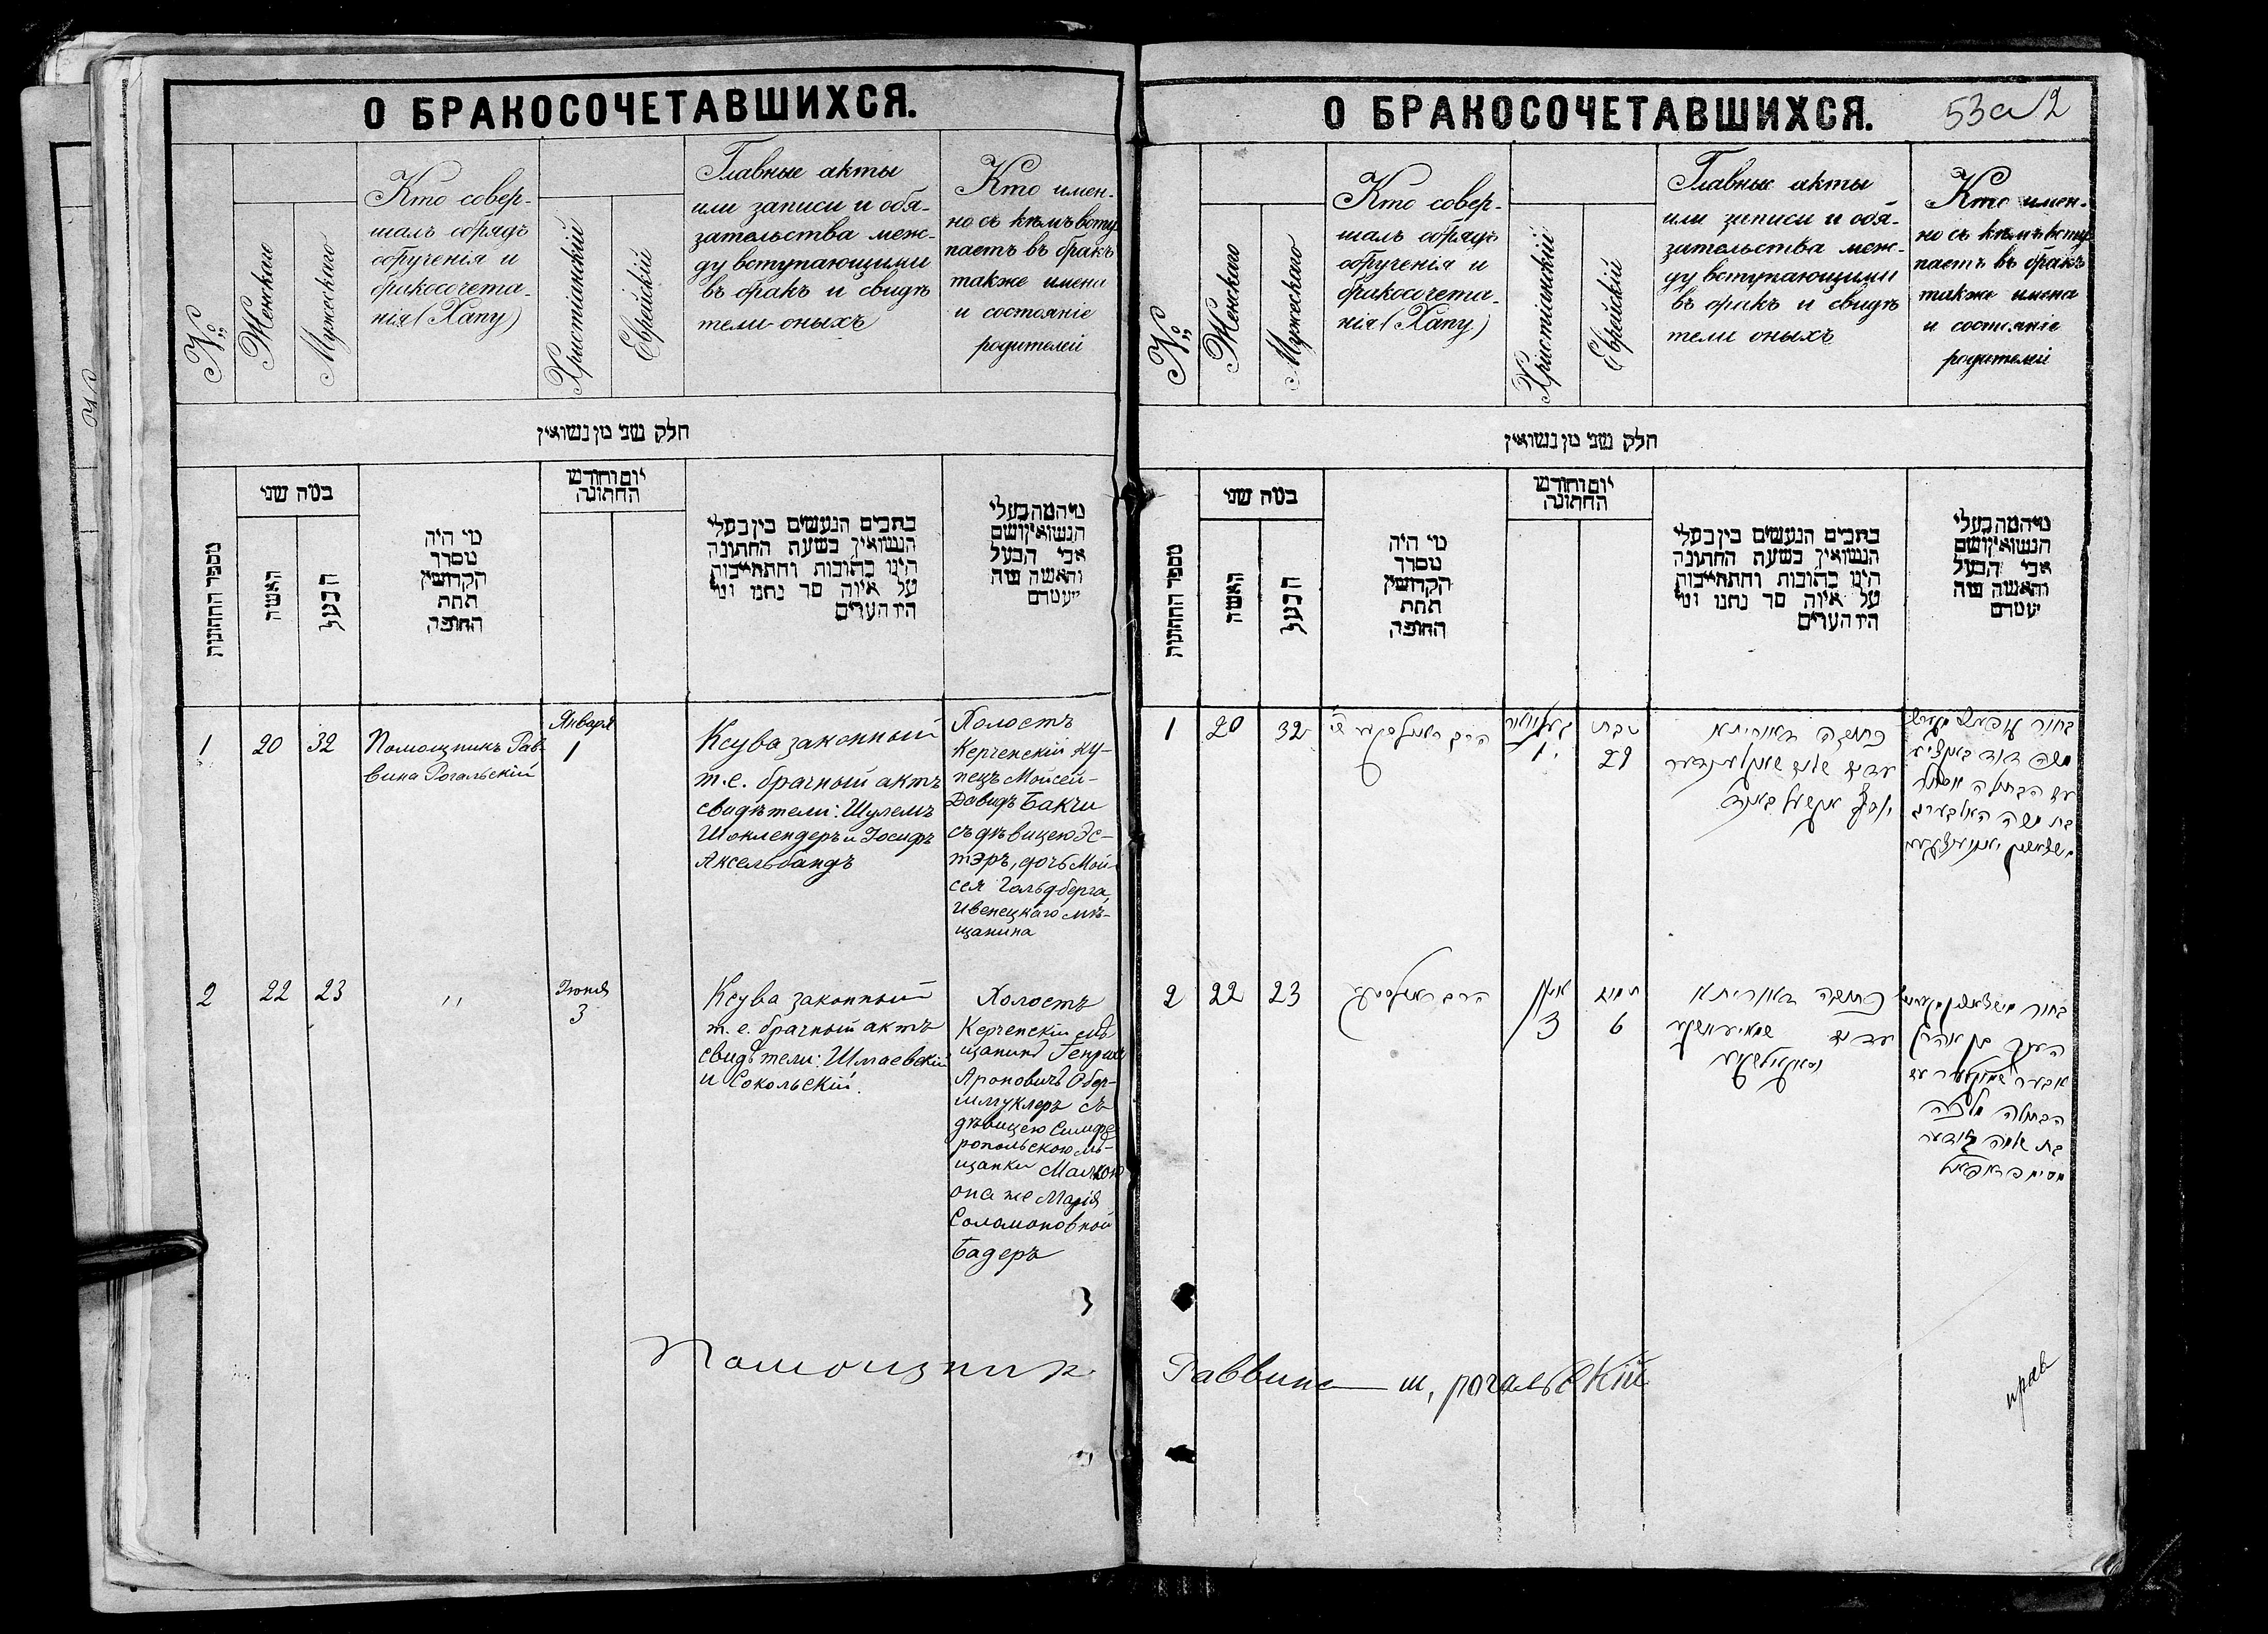 О БРАКОСОЧЕТАВШИХСЯ.
№
Женскаго
Мужескаго
Кто совер-
шалъ обрядъ
обрученія и
бракосочета-
нія (Хапу)
Христіанскій
Еврейскій
Главные акты
или записи и обя-
зательства меж-
ду вступающими
въ бракъ и свидѣ
тели оныхъ
Кто имен-
но съ кѣмъ всту
паетъ въ бракъ
также имена
и состояніе
родителей
חלק שני מן נשואין
מספר החתונות
כמה שני
האשה
הבעל
מי היה
מסדר
הקדושין
תחת
החופה
יום וחודש
החתונה
כתבים הנעשים בין בעלי
הנשואין בשעת החתונה
היינו כתובות והתחייבות
על איזה סך נתנו ומי
היו העדים
מי המה בעלי
הנשואין ושם
אבי הבעל
והאשה ומה
מעמדם
1
20
32
Помощникъ Рав-
вина Рогальскій
Января
1
Ксува законный
т.е. брачный актъ
свидѣтели: Шулемъ
Шонлендеръ и Іосифъ
Аксельбандъ
Холостъ
Керченскій ку-
пецъ Мойсей-
Давидъ Бакчи
съ дѣвицею Эс-
тэръ, дочь Мой-
сея Гольдберга,
Ивенецкаго мѣ-
щанина
2
22
23
"
Іюня
3
Ксува законный
т. е. брачный актъ
свидѣтели: Шмаевскій
и Сокольскій.
Холостъ
Керченскій мѣ
щанинъ Генрихъ
Ароновичъ Обер-
шмуклеръ съ
дѣвицею Симфе
ропольскою мѣ-
щанки Малкою
она же Марія
Соломоновной
Бадеръ
Помощник
О БРАКОСОЧЕТАВШИХСЯ.
53а 2
№
Женскаго
Мужескаго
Кто совер-
шалъ обрядъ
обрученія и
бракосочета-
нія (Хапу)
Христіанскій
Еврейскій
Главные акты
или записи и обя-
зательства меж-
ду вступающими
въ бракъ и свидѣ
тели оныхъ
Кто имен-
но съ кѣмъ всту
паетъ въ бракъ
также имена
и состояніе
родителей
חלק שני מן נשואין
מספר החתונות
כמה שני
האשה
הבעל
מי היה
מסדר
הקדושין
תחת
החופה
יום וחודש
החתונה
כתבים הנעשים בין בעלי
הנשואין בשעת החתונה
היינו כתובות והתחייבות
על איזה סך נתנו ומי
היו העדים
מי המה בעלי
הנשואין ושם
אבי הבעל
והאשה ומה
מעמדם
1
20
32
הרב
1
טבת
29
כתובה דאורייתא
בחור
משה דוד
עם הבתולה אסתר
בת משה
2
22
23
הרב
3
תמוז
6
כתובה דאורייתא
בחור
בן אהרן
הבתולה מלכה
Раввина ш, рогальскій